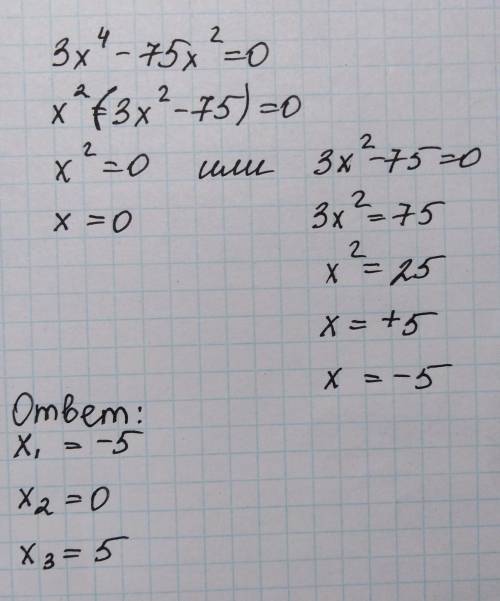 3x⁴ - 75x² = 0
x² (3x² - 75) = 0
x² = 0 или 3x² - 75 = 0
x = 0 3x² = 75
x² = 25
x = +5
x = -5
Ответ:
x₁ = -5
x₂ = 0
x₃ = 5